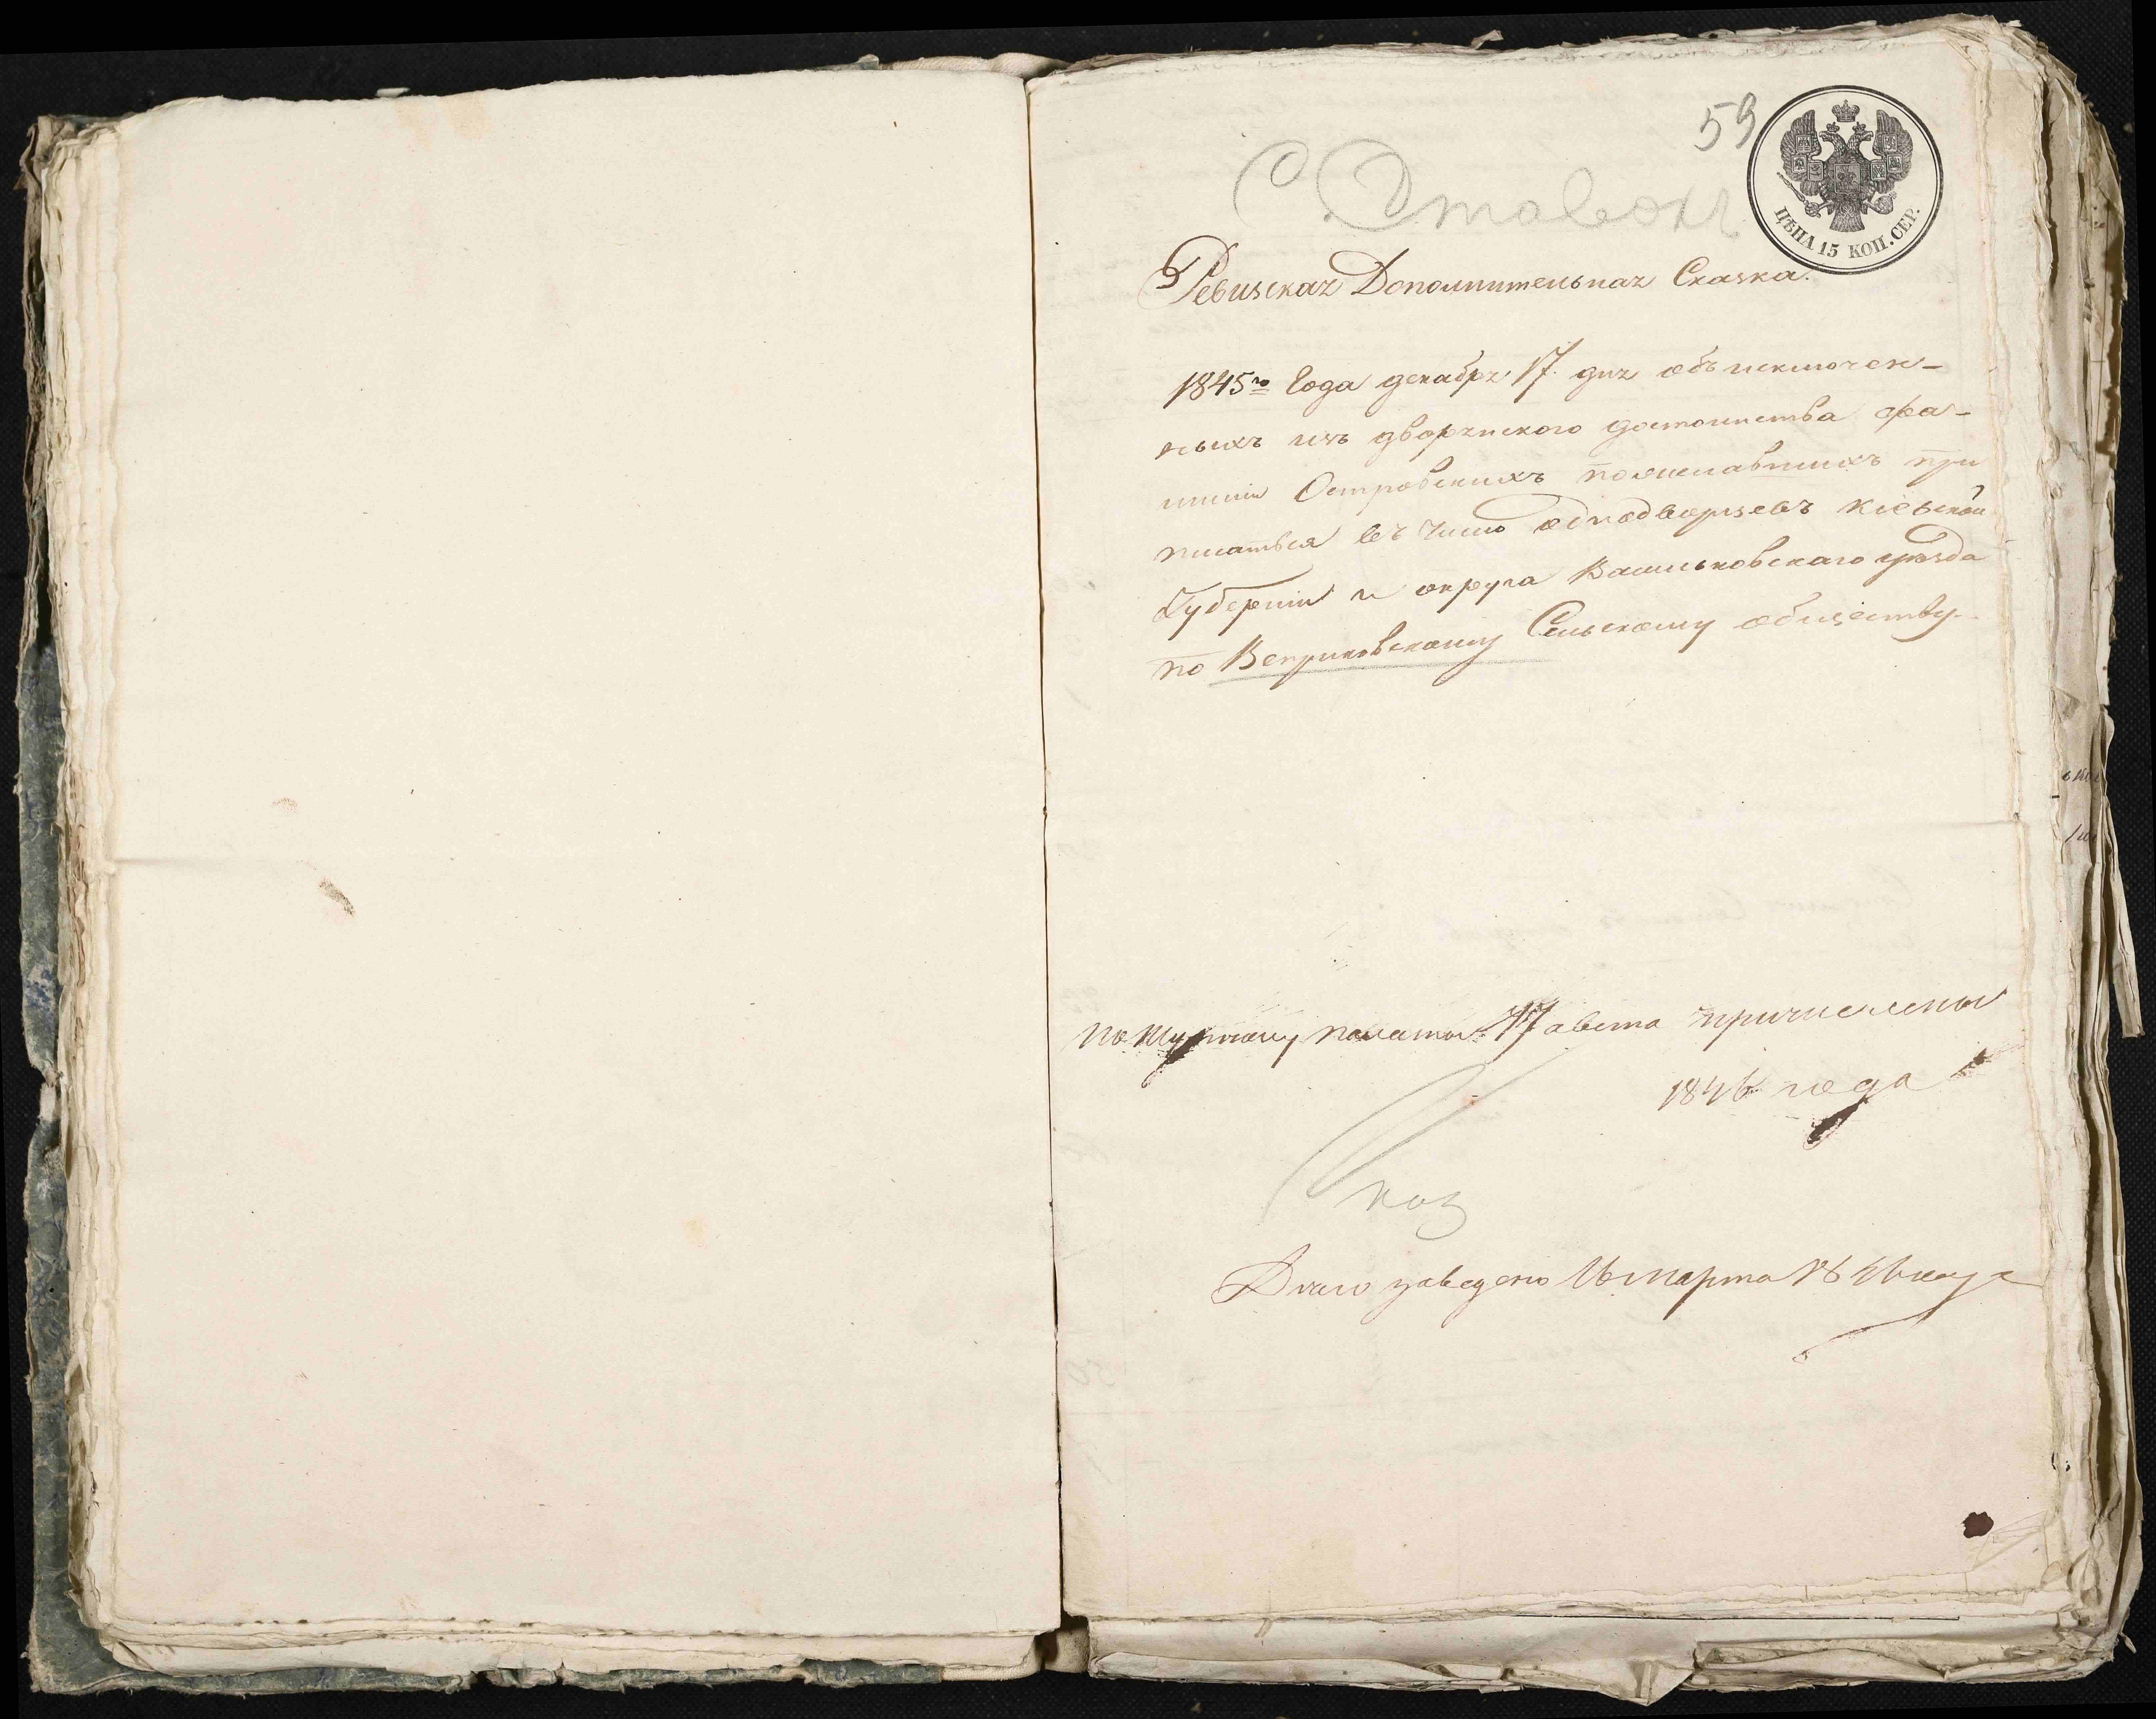 59
С. Ставокъ
ЦѢНА 15 КОП. СЕР.
Ревизская Дополнительная Сказка.
1845го Года декабря 17 дня объ исключен-
ныхъ изъ дворянского достоинства фа-
милiи Островскихъ пожелавшихъ при
писатьса въ Число однодворцевъ Кiевской
Губернiи и округа Васильковскаго уѣзда
по Веприковскому Сельскому обществу.
по журналу палаты 17 авста причислены
1846 года
Дѣло заведено 16 марта 1846 года